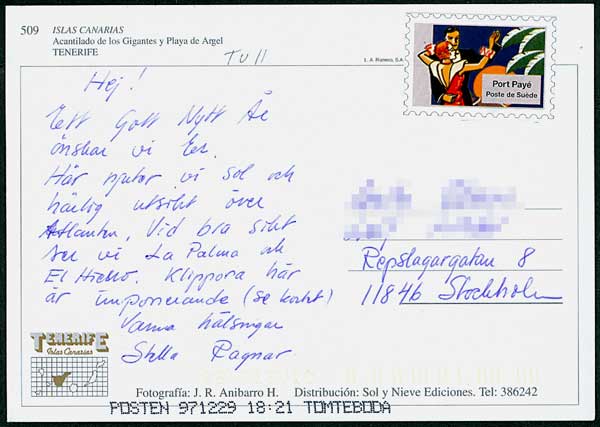 509 ISLAS CANARIAS
Acantilado de los Gigantes y Playa de Argel
TENERIFE
TU 11
L. A. Romero, S.A.
Port Payé
Poste de Suède
Hej!
Ett Gott Nytt År
önskar vi Er.
Här njuter vi sol och
härlig utsikt över
Atlanten. Vid bra sikt
ser vi La Palma och
El Hierro. Klipporna här
är imponerande (se kortet)
Varma hälsningar
Stella Ragnar
Repslagargatan 8
11846 Stockholm
TENERIFE
Islas Canarias
Fotografía: J. R. Anibarro H. Distribución: Sol y Nieve Ediciones. Tel: 386242
POSTEN 971229 18:21 TOMTEBODA